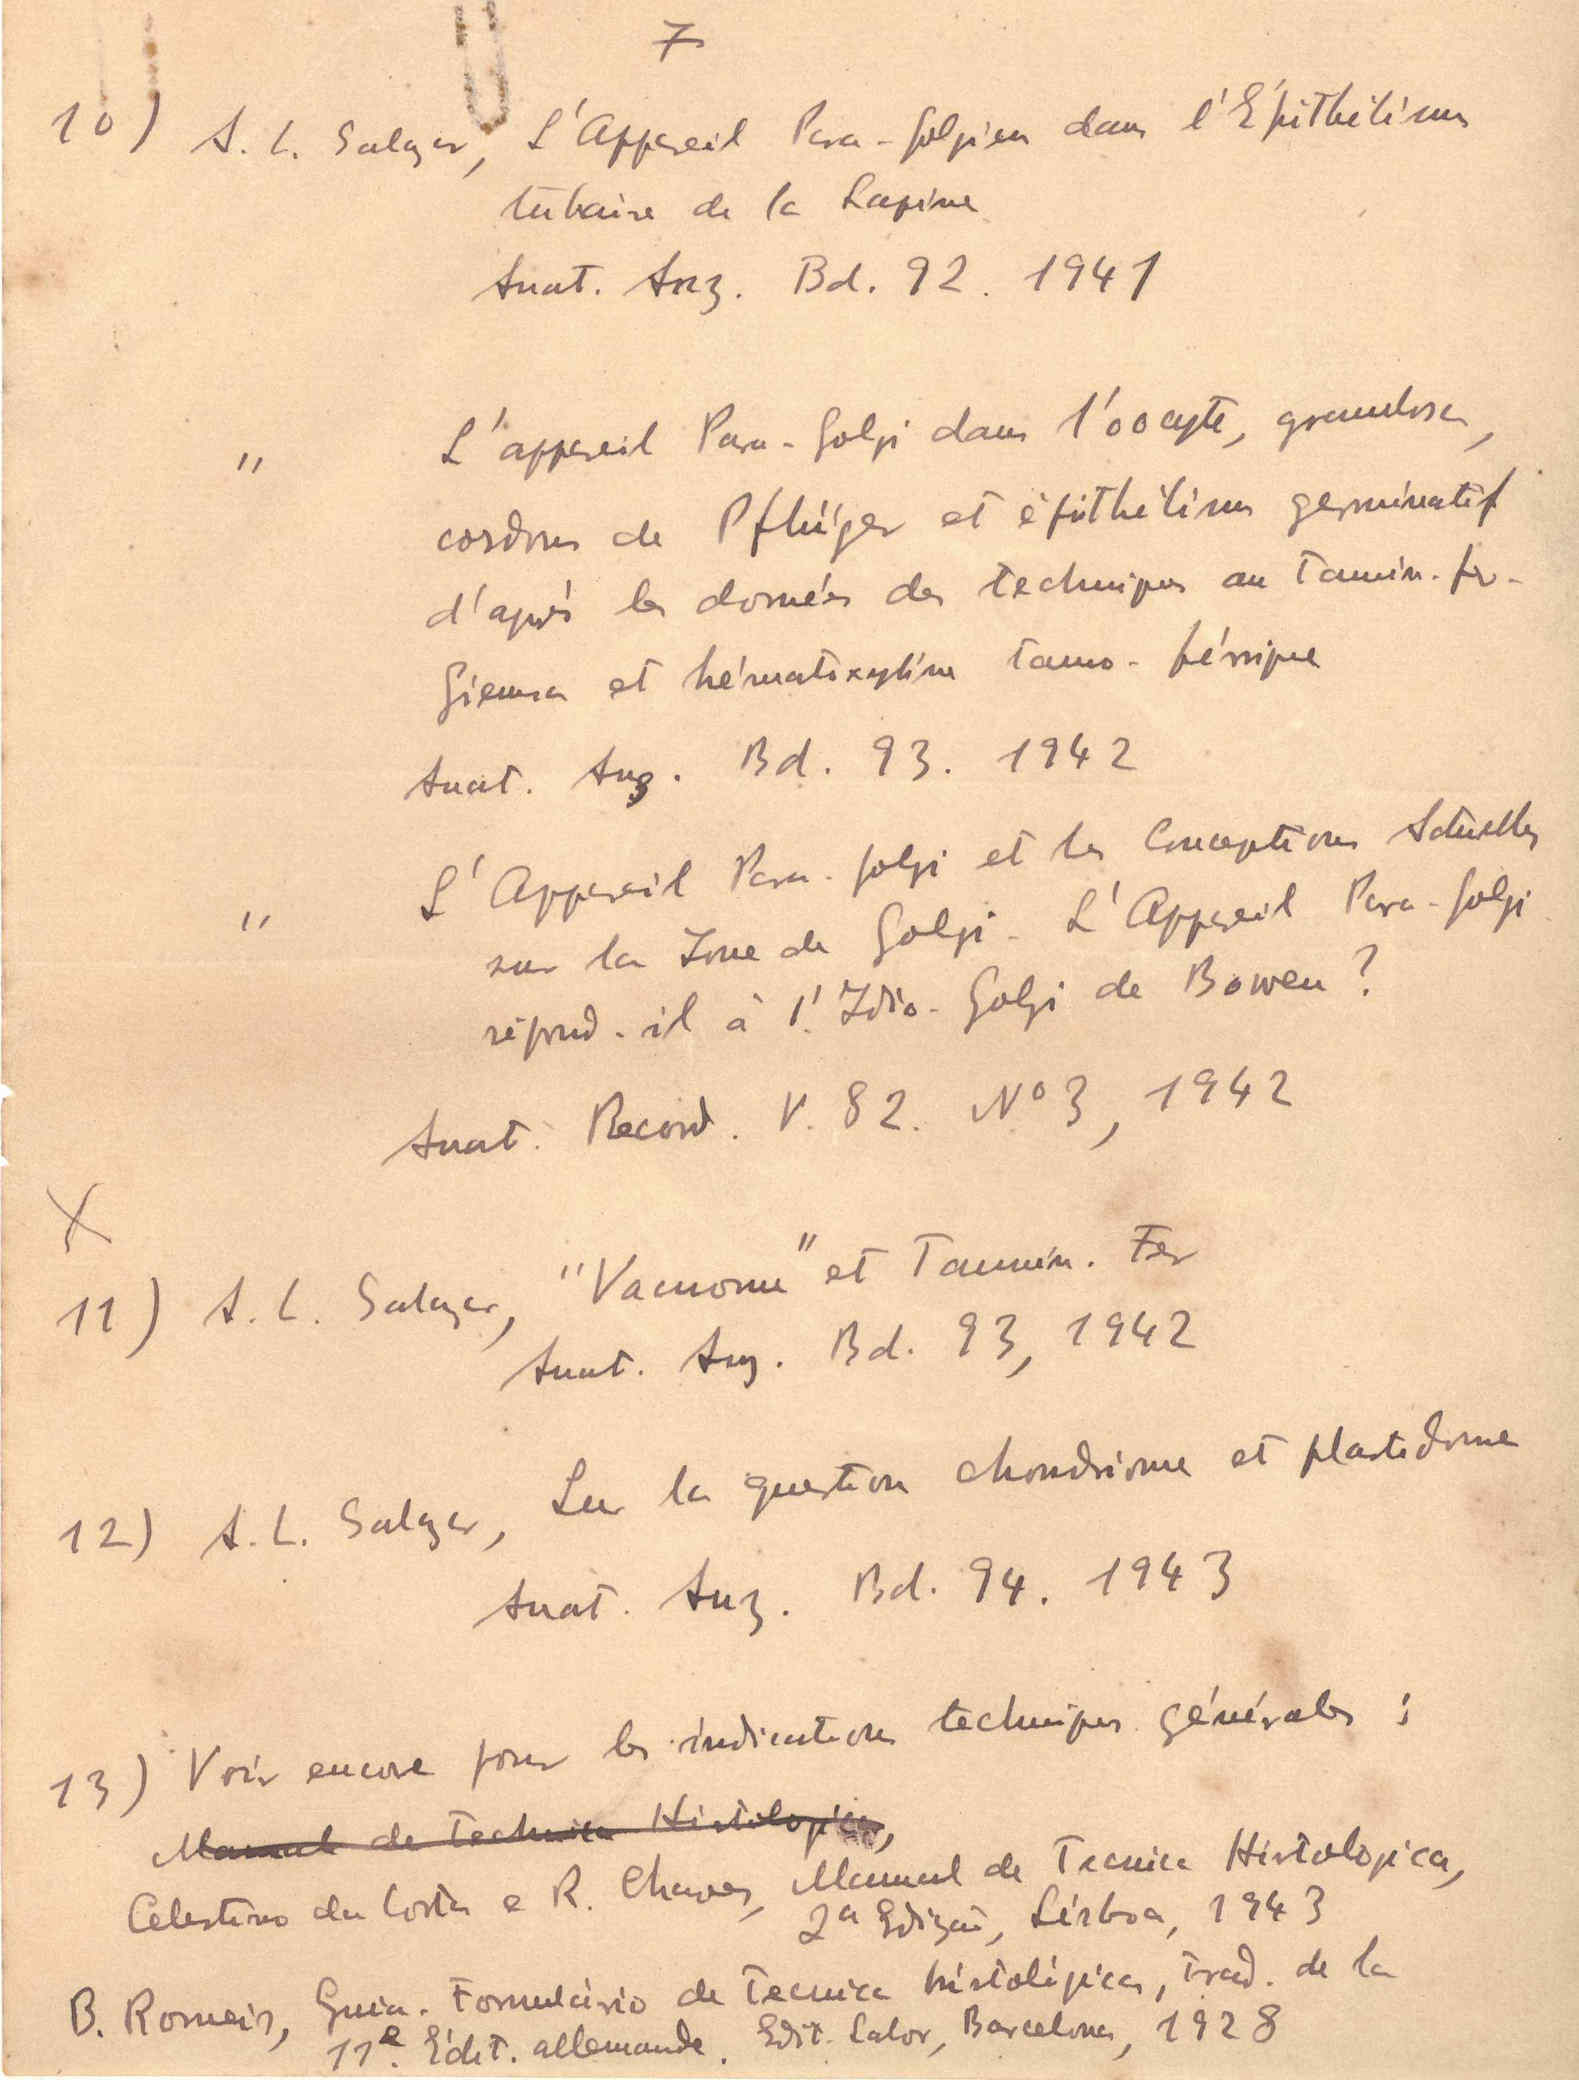 7
10) A. L. Salazar, L'Appareil Para-Golgien dans l'Épithélium
tubaire de la Lapine
Anat. Anz. Bd. 92. 1941
" L'appareil Para-Golgi dans l'oocyte, granulosa,
cordons de Pflüger et épithélium germinatif
d'après les données des techniques au Tannin-fer-
Giemsa et hématoxyline tanno-férrique
Anat. Anz. Bd. 93. 1942
" L'Appareil Para-Golgi et les Conceptions Actuelles
sur la Zone de Golgi. L'Appareil Para-Golgi
répond-il à l'Idio-Golgi de Bowen?
Anat. Record. V. 82. Nº 3, 1942
X
11) A. L. Salazar, "Vacuome" et Tannin. Fer
Anat. Anz. Bd. 93, 1942
12) A. L. Salazar, Sur la question chondriome et plastidome
Anat. Anz. Bd. 94. 1943
13) Voir encore pour les indications techniques générales:
Manual de Technica Histologica,
Celestino da Costa e R. Chaves, Manual de Tecnica Histologica,
2a Edição, Lisboa, 1943
B. Romeis, Guia-Formulário de Tecnica histológica, trad. de la
11e. Édit. allemande. Edit. Labor, Barcelona, 1928